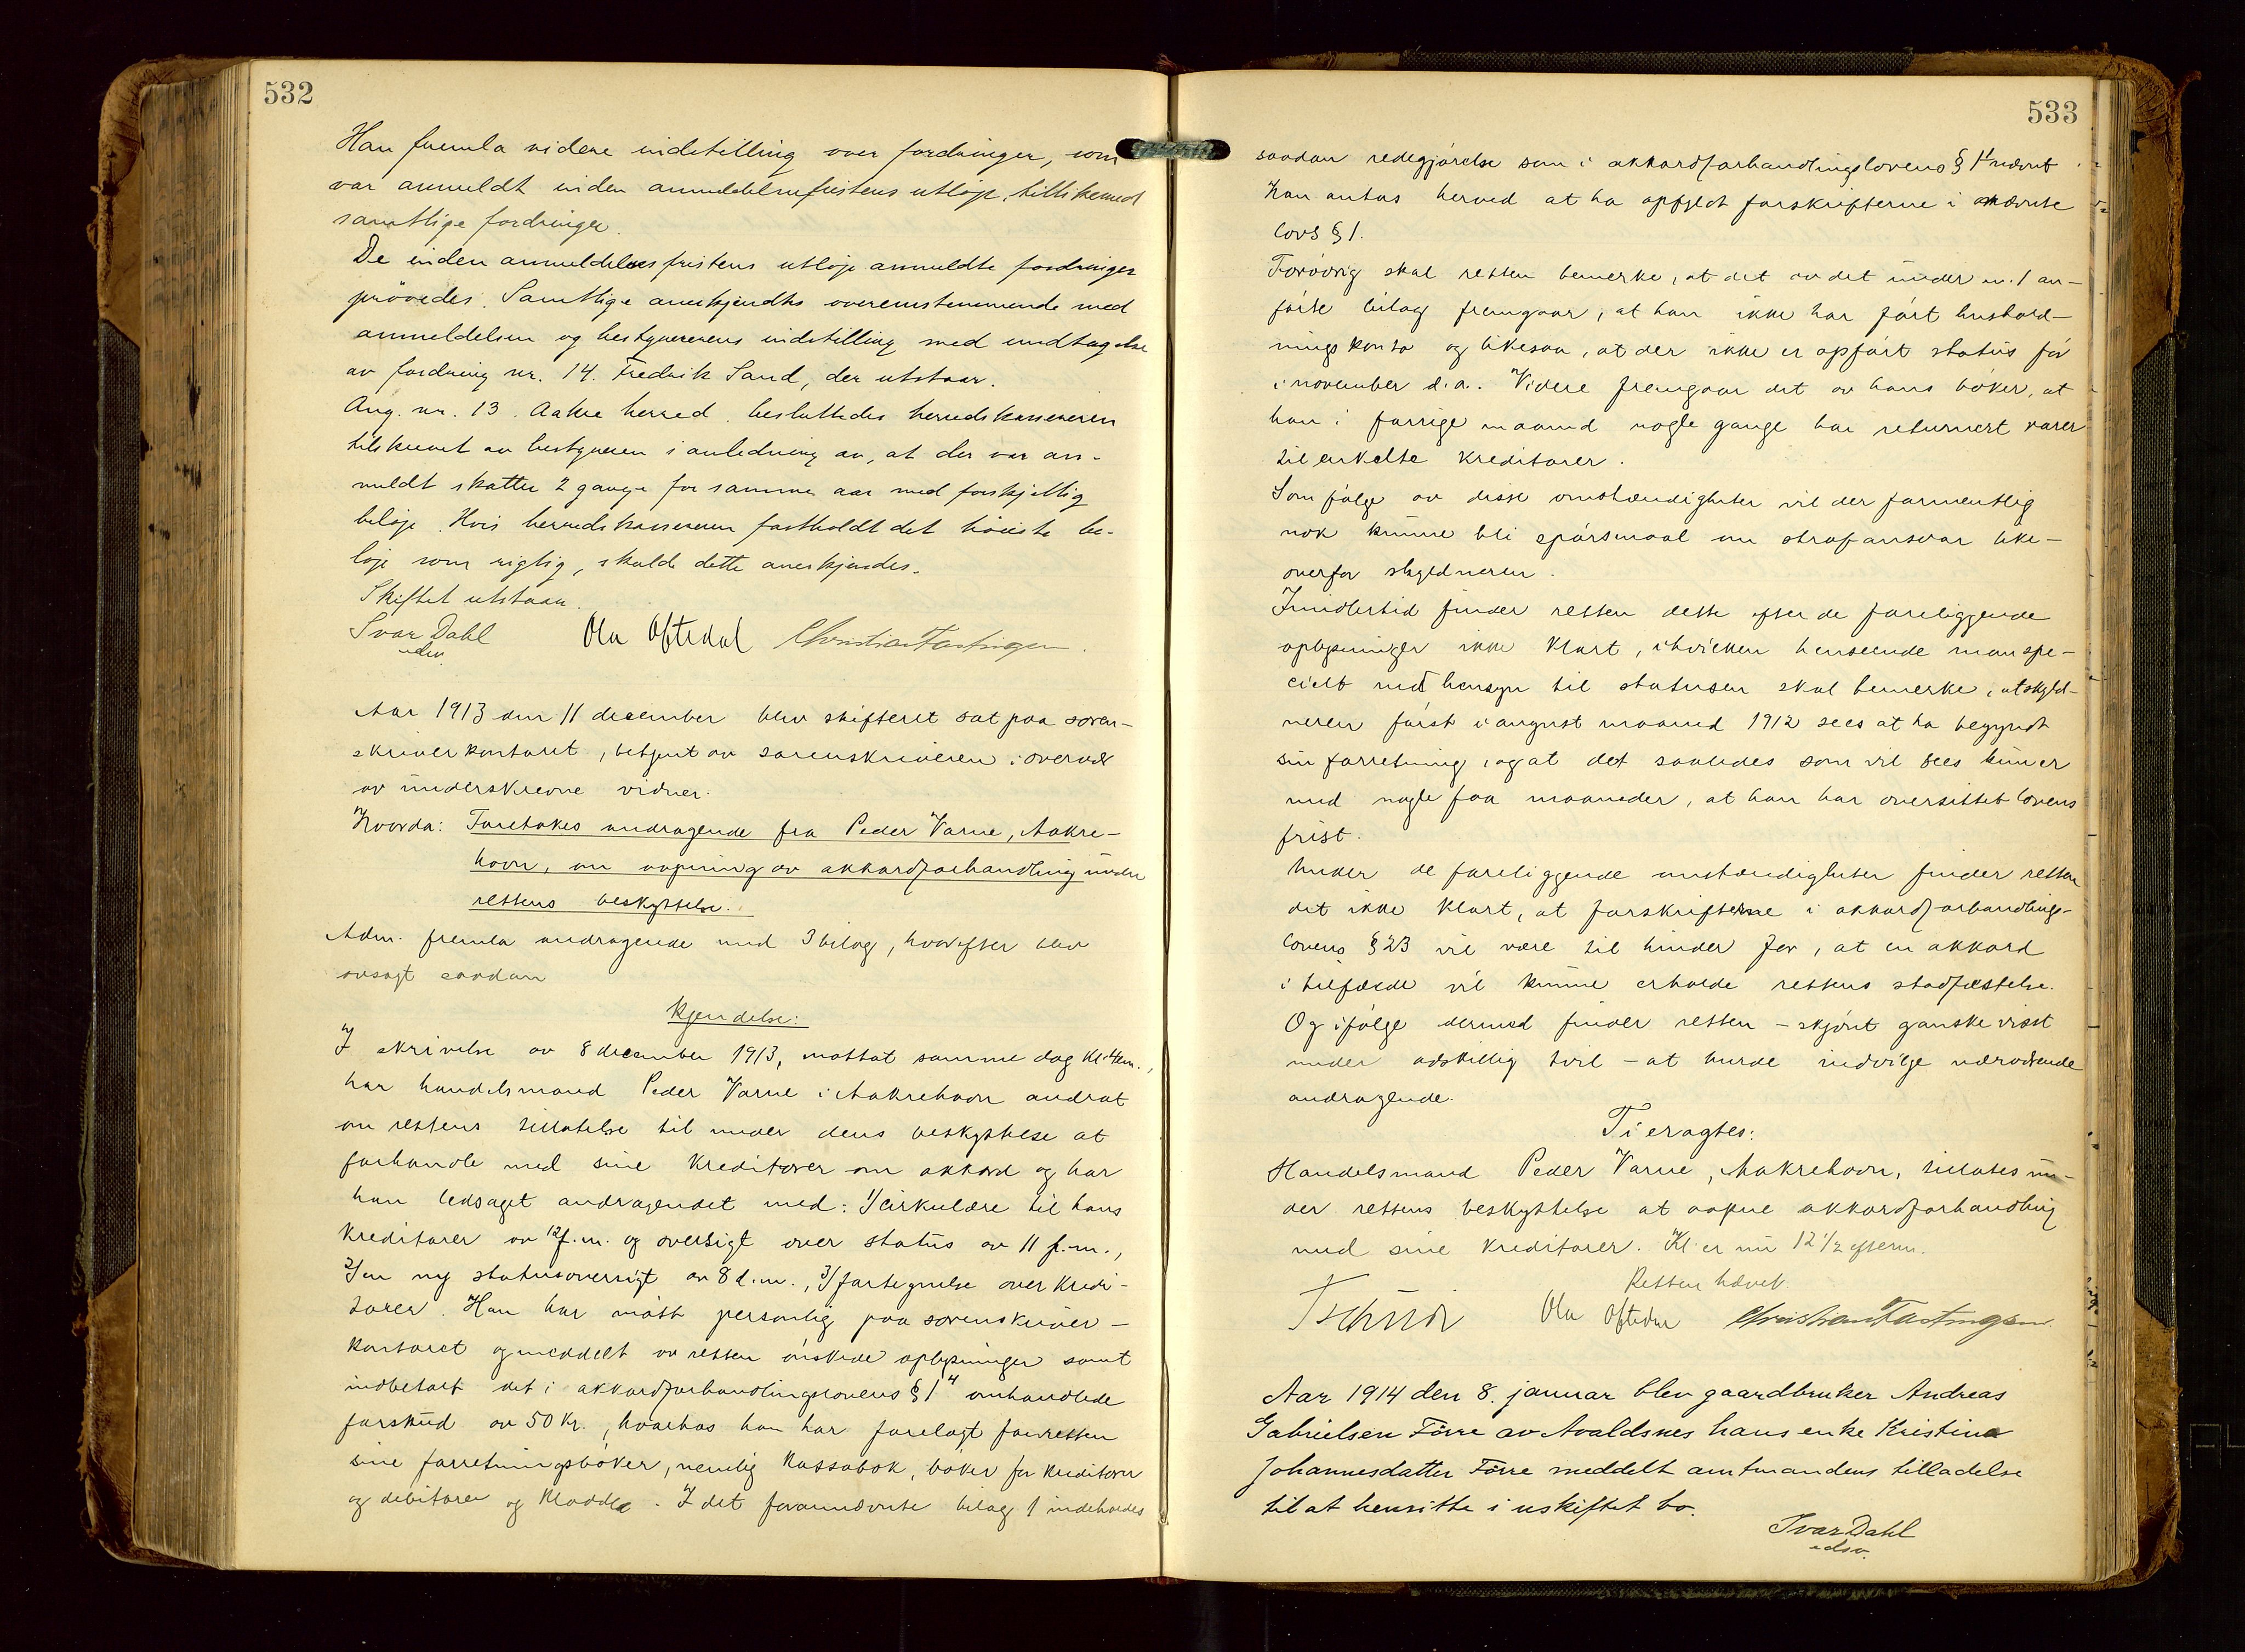 532
Han fremla videre indstilling over fordringer, som
var anmeldt inden anmeldelsesfristens utløp, tillikemed
samtlige fordringer.
De inden anmeldelsesfristens utløp anmeldte fordringer
prøvedes. Samtlige anerkjendtes overensstemmende med
anmeldelsen og bestyrerens indstilling med undtagelse
av fordring nr. 14. Fredrik Sand, der utstaar.
Ang. nr. 13. Aakre herred besluttedes herredskassereren
tilskrevet av bestyreren i anledning av, at der var an-
meldt skatter 2 gange for samme aar med forskjellig
beløp. Hvis herredskassereren fastholdt det høieste be-
løp som rigtig, skulde dette anerkjendes.
Skiftet utstaar.
Ivar Dahl Ola Oftedal Christian Fastingsen.
edsv.
Aar 1913 den 11 december blev skifteret sat paa soren-
skriverkontoret, betjent av sorenskriveren i overvær
av underskrevne vidner.
Hvorda: Foretokes andragende fra Peder Varne, Aakre-
havn, om aapning av akkordforhandling under
rettens beskyttelse.
Adm. fremla andragende med 3 bilag, hvorefter blev
avsagt saadan
Kjendelse:
I skrivelse av 8 december 1913, mottat samme dag kl. 4 em.,
har handelsmand Peder Varne i Aakrehavn andrat
om rettens tillatelse til under dens beskyttelse at
forhandle med sine kreditorer om akkord og har
han ledsaget andragendet med: 1/ cirkulære til hans
kreditorer av 12 f.m. og oversigt over status av 11 f.m.,
2/ en ny statusoversigt av 8 d.m., 3/ fortegnelse over kredi-
torer. Han har møtt personlig paa sorenskriver-
kontoret og meddelt av retten ønskede oplysninger samt
indbetalt det i akkordforhandlingslovens § 1 4 omhandlede
forskud av 50 kr., hvorhos han har forelagt for retten
sine forretningsbøker, nemlig kassabok, bøker for kreditorer
og debitorer og kladde. I det forannævnte bilag 1 indeholdes
533
saadan redegjørelse som i akkordforhandlingslovens § 1 4 nævnt
Han antas herved at ha opfyldt forskrifterne i nævnte
lovs § 1.
Forøvrig skal retten bemerke, at det av det under nr. 1 an-
førte bilag fremgaar, at han ikke har ført hushold-
ningskonto og likesaa, at der ikke er opført status før
i november d.a. Videre fremgaar det av hans bøker, at
han i forrige maaned nogle gange har returnert varer
til enkelte kreditorer.
Som følge av disse omstændigheter vil der formentlig
nok kunne bli spørsmaal om strafansvar like-
overfor skyldneren.
Imidlertid finder retten dette efter de foreliggende
oplysninger ikke klart, i hvilken henseende man spe-
cielt med hensyn til statusen skal bemerke, at skyld-
neren først i august maaned 1912 sees at ha begyndt
sin forretning, og at det saaledes som vil sees kun er
med nogle faa maaneder, at han har oversittet lovens
frist.
Under de foreliggende omstændigheter finder retten
det ikke klart, at forskrifterne i akkordforhandlings-
lovens § 23 vil være til hinder for, at en akkord
i tilfælde vil kunne erholde rettens stadfæstelse.
Og ifølge dermed finder retten – skjønt ganske visst
under adskillig tvil – at burde indvilge nærværende
andragende.
Ti eragtes:
Handelsmand Peder Varne, Aakrehavn, tillates un-
der rettens beskyttelse at aapne akkordforhandling
med sine kreditorer. Kl. er nu 12 1/2 efterm.
Retten hævet.
Tschudi Ola Oftedal Christian Fastingsen.
Aar 1914 den 8. januar blev gaardbruker Andreas
Gabrielsen Förre av Avaldsnes hans enke Kristina
Johannesdatter Förre meddelt amtmandens tilladelse
til at hensitte i uskiftet bo.
Ivar Dahl
edsv.